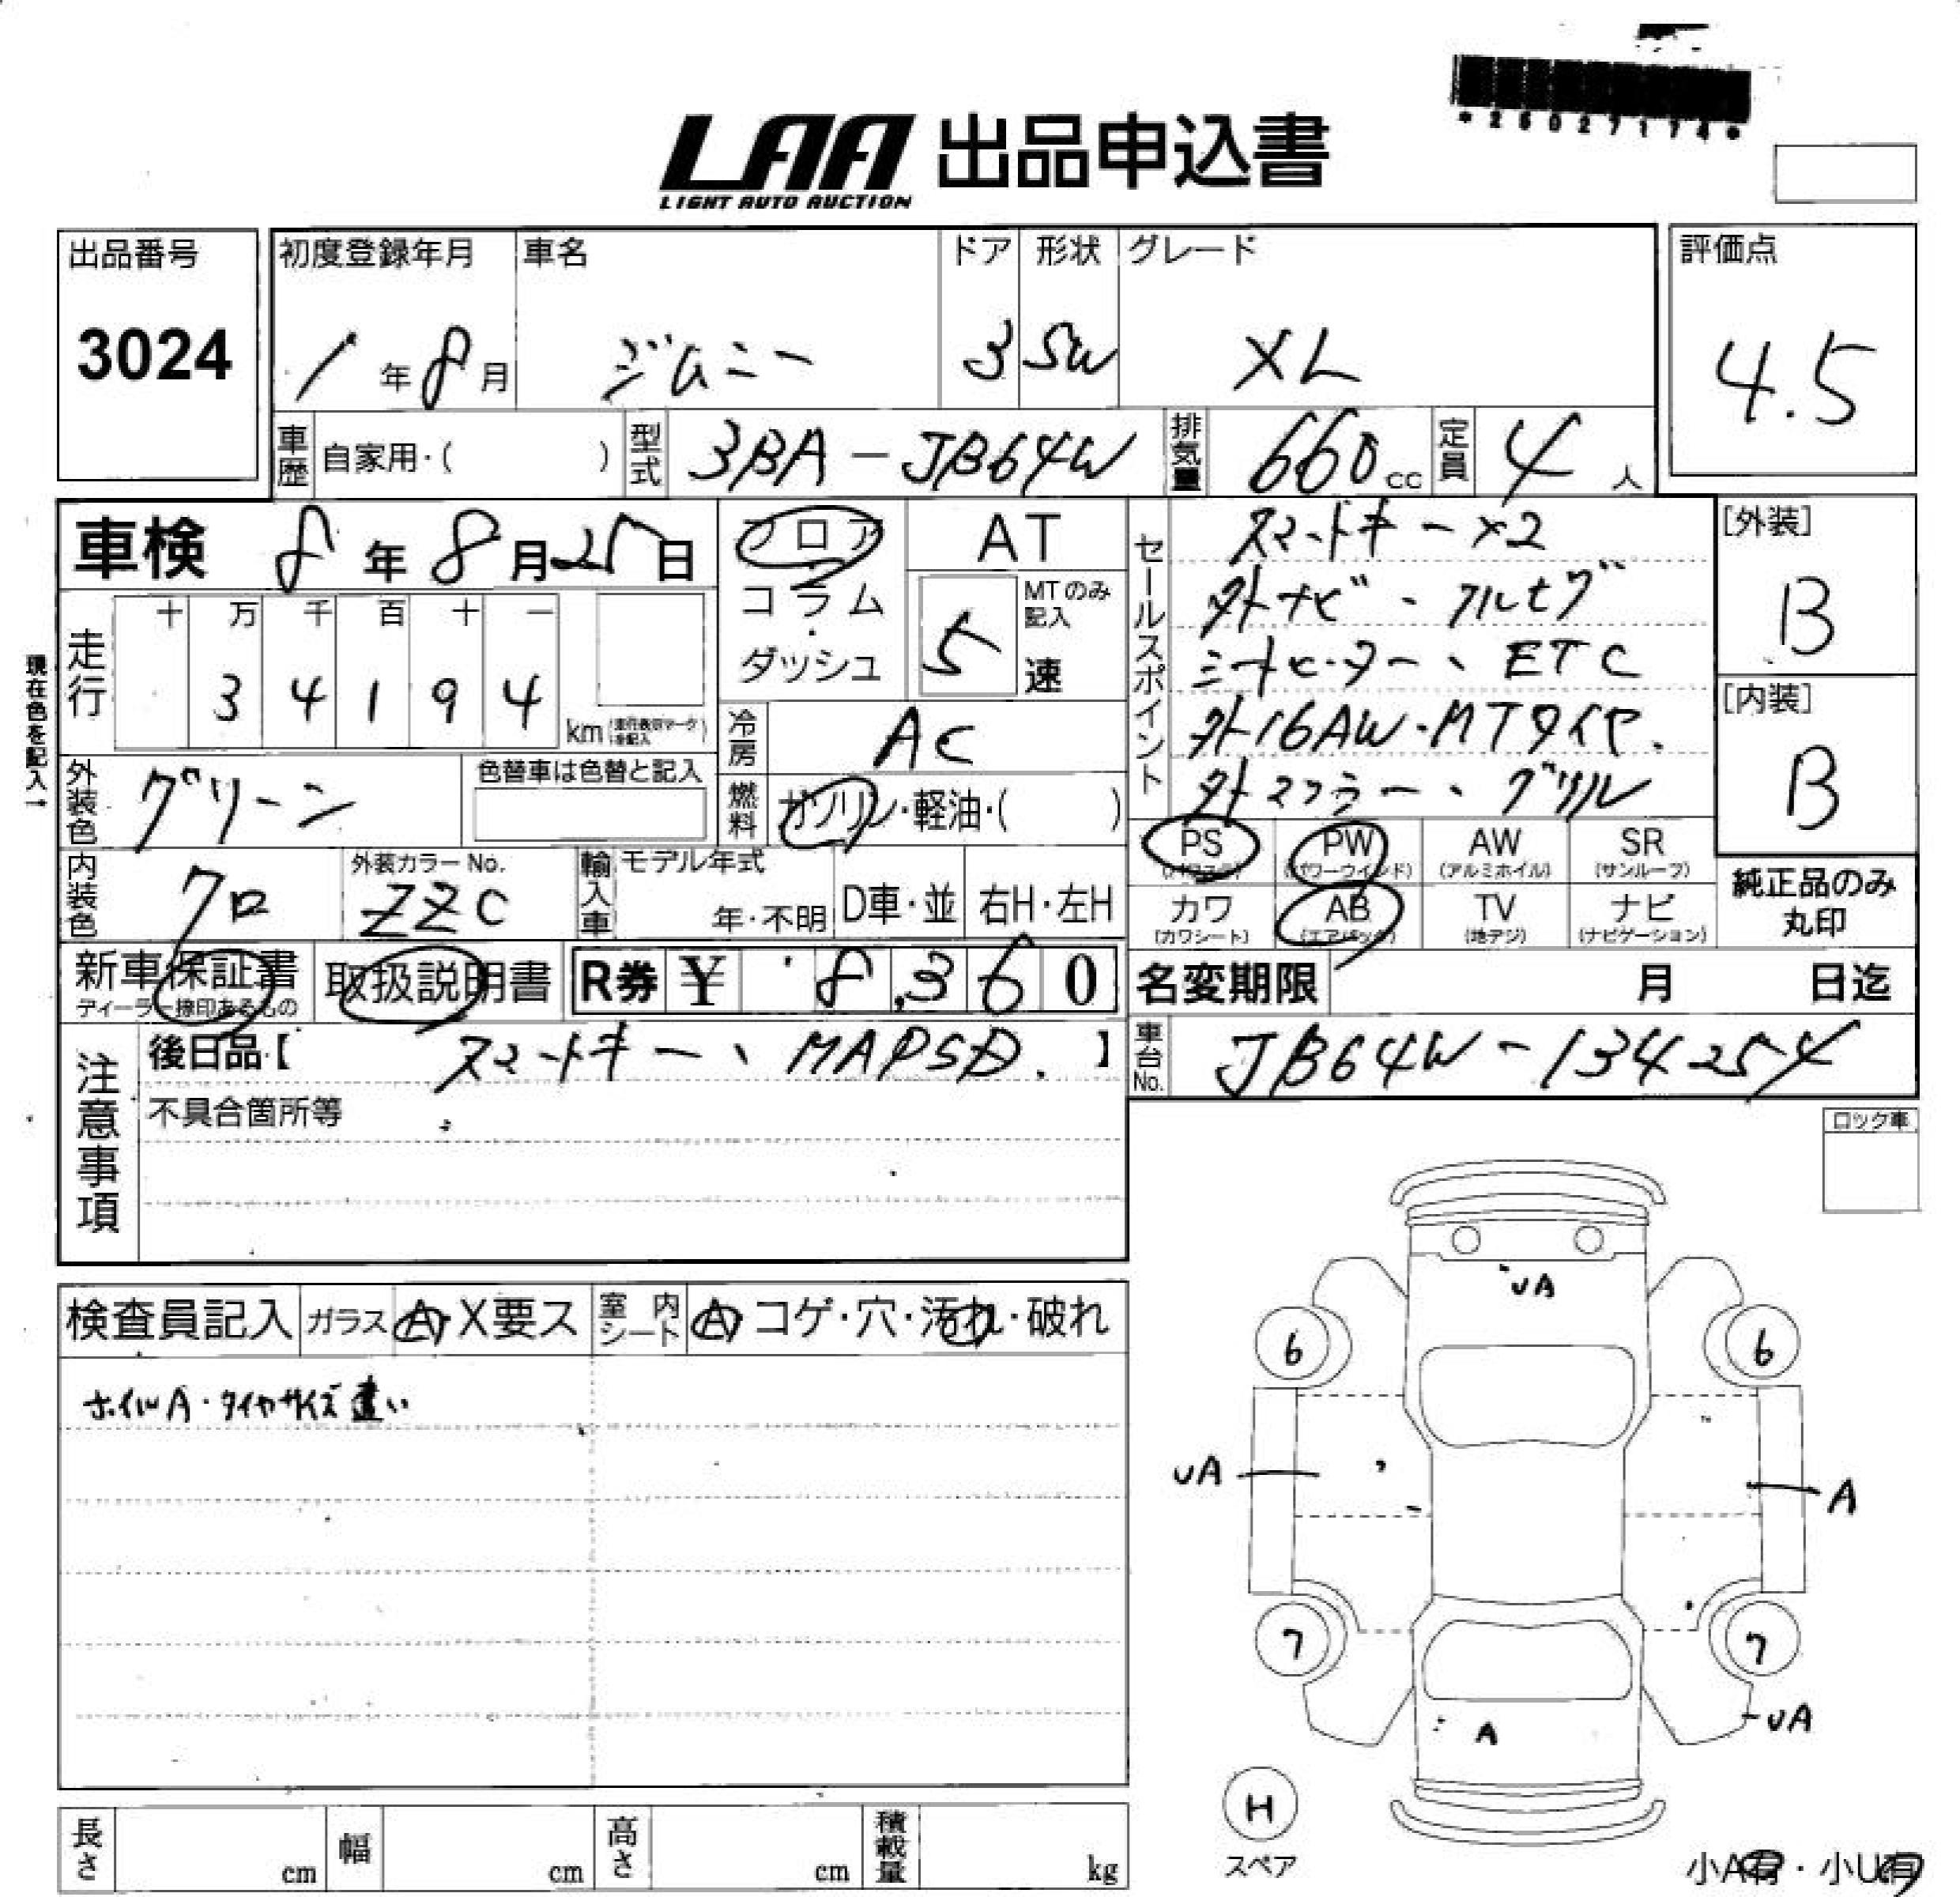 *26027174*
LAA 出品申込書
LIGHT AUTO AUCTION
出品番号
3024
初度登録年月 車名 ドア 形状 グレード
1年8月 ジムニー 3 SW XL
評価点
4.5
車歴 自家用・( ) 型式 3BA-JB64W 排気量 660cc 定員 4人
車検 8年8月25日
フロア
コラム
ダッシュ
AT
MTのみ記入
5速
セールスポイント
スマートキー×2
外ナビ・フルセグ
シートヒーター、ETC
外16AW・MTタイヤ.
外マフラー、グリル
[外装]
B
[内装]
B
現在色を記入→
走行 十 万 千 百 十 一
3 4 1 9 4 km
冷房 AC
燃料 ガソリン・軽油・( )
外装色 グリーン 色替車は色替と記入
内装色 クロ 外装カラーNo. ZZC
輸入車 モデル年式 年・不明 D車・並 右H・左H
PS(パワステ) PW(パワーウインド) AW(アルミホイル) SR(サンルーフ)
カワ(カワシート) AB(エアバック) TV(地デジ) ナビ(ナビゲーション)
純正品のみ丸印
新車保証書 取扱説明書 R券 ¥ 8,360
ディーラー捺印あるもの
名変期限 月 日迄
注意事項
後日品【スマートキー、MAPSD.】
不具合箇所等
車台No. JB64W-134254
ロック車
検査員記入 ガラス A・X要ス 室内シート A・コゲ・穴・汚れ・破れ
ホイルA・タイヤサイズ違い
UA
6 6
UA A
7 7
A UA
H
スペア
長さ cm 幅 cm 高さ cm 積載量 kg
小A有・小U有